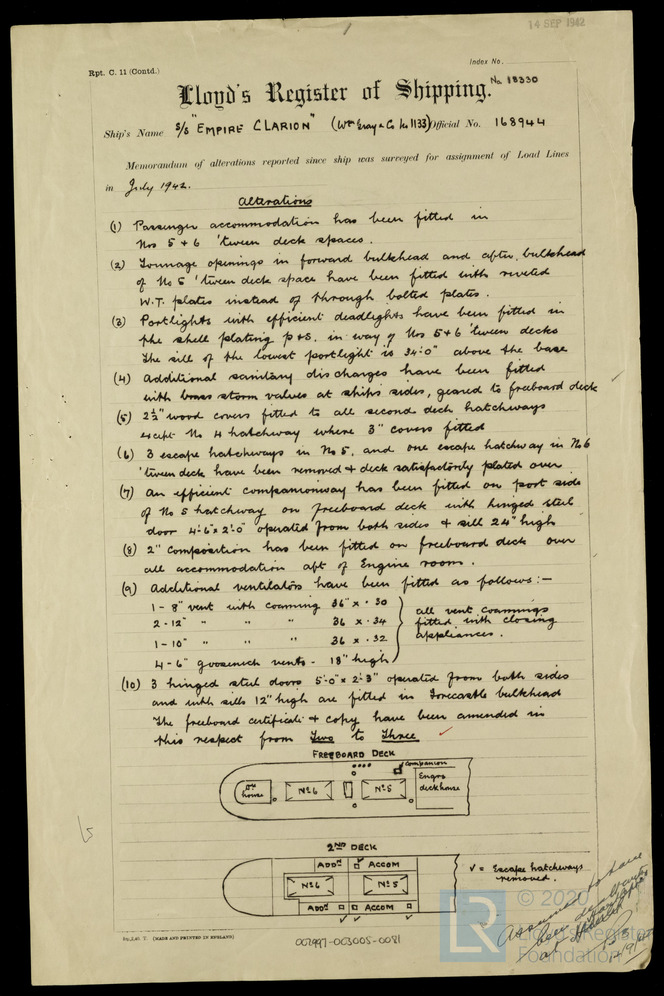 14 SEP 1942
Rpt. C. 11 (Contd.)
Index No.
No 18330
Lloyd's Register of Shipping.
Ship's Name S/S "EMPIRE CLARION" (Wm Gray & Co No 1133) Official No. 168944
Memorandum of alterations reported since ship was surveyed for assignment of Load Lines
in July 1942.
Alterations
(1) Passenger accommodation has been fitted in
Nos 5 & 6 'tween deck spaces.
(2) Tonnage openings in forward bulkhead and after bulkhead
of No 5 'tween deck space have been fitted with riveted
W.T. plates instead of through bolted plates.
(3) Portlights with efficient deadlights have been fitted in
the shell plating P & S. in way of Nos 5 & 6 'tween decks
The sill of the lowest portlight is 34'-0" above the base
(4) Additional sanitary discharges have been fitted
with brass storm valves at ships sides, geared to freeboard deck
(5) 2½" wood covers fitted to all second deck hatchways
except No 4 hatchway where 3" covers fitted
(6) 3 escape hatchways in No 5, and one escape hatchway in No 6
'tween deck have been removed & deck satisfactorily plated over
(7) An efficient companionway has been fitted on port side
of No 5 hatchway on freeboard deck with hinged steel
door 4'-6" x 2'-0" operated from both sides & sill 24" high
(8) 2" composition has been fitted on freeboard deck over
all accommodation aft of Engine room.
(9) Additional ventilators have been fitted as follows:—
1 - 8" vent with coaming 36" x .30
2 - 12" " " " 36 x .34
1 - 10" " " " 36 x .32
4 - 6" gooseneck vents - 18" high
all vent coamings
fitted with closing
appliances.
(10) 3 hinged steel doors 5'-0" x 2'-3" operated from both sides
and with sills 12" high are fitted in Forecastle bulkhead
The freeboard certificate & copy have been amended in
this respect from Two to Three
FREEBOARD DECK
companion
house
No 6
No 5
Engrs
deckhouse
2ND DECK
ADDN ACCOM
No 6
No 5
ADDN ACCOM
√ = Escape hatchways
removed.
(MADE AND PRINTED IN ENGLAND)
002997-003005-0081
Assumed to have
been
at
© 2020
LR
Lloyd's Register
Foundation